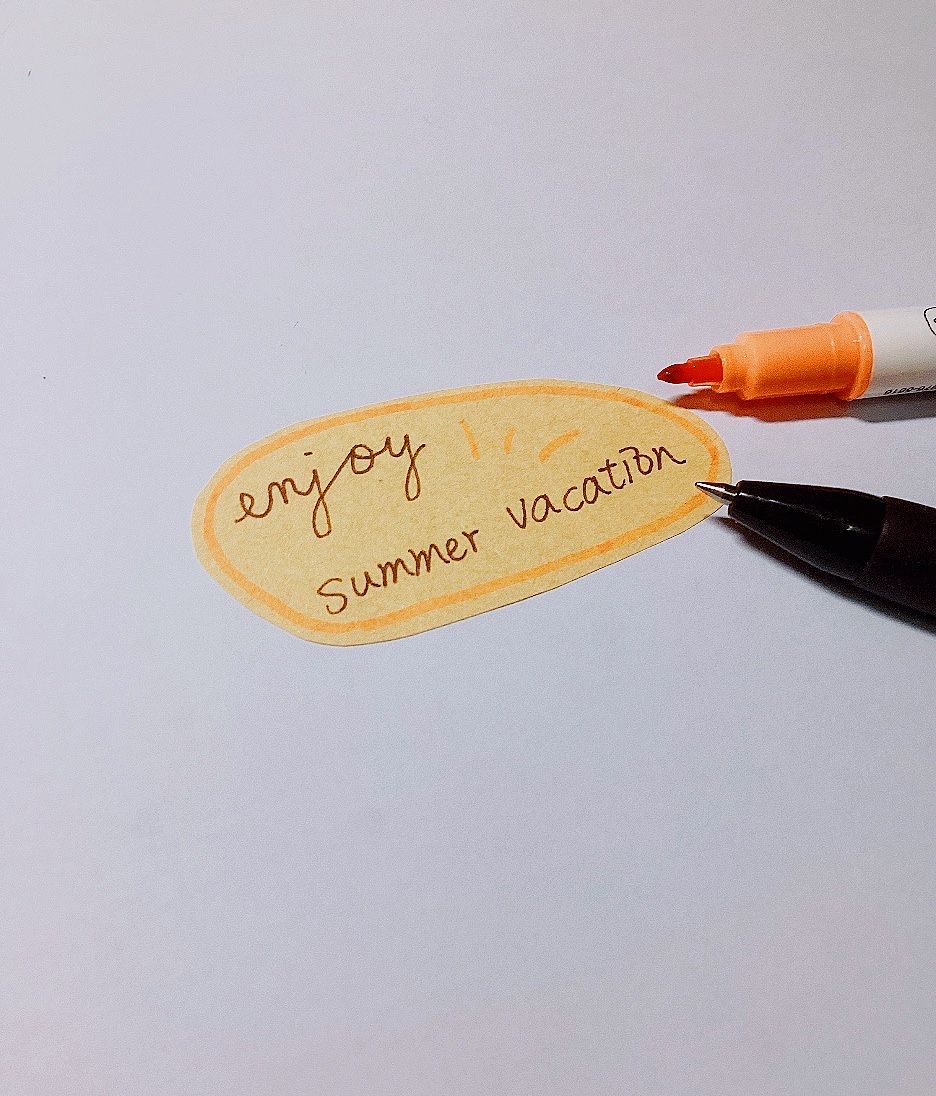 enjoy
summer vacation